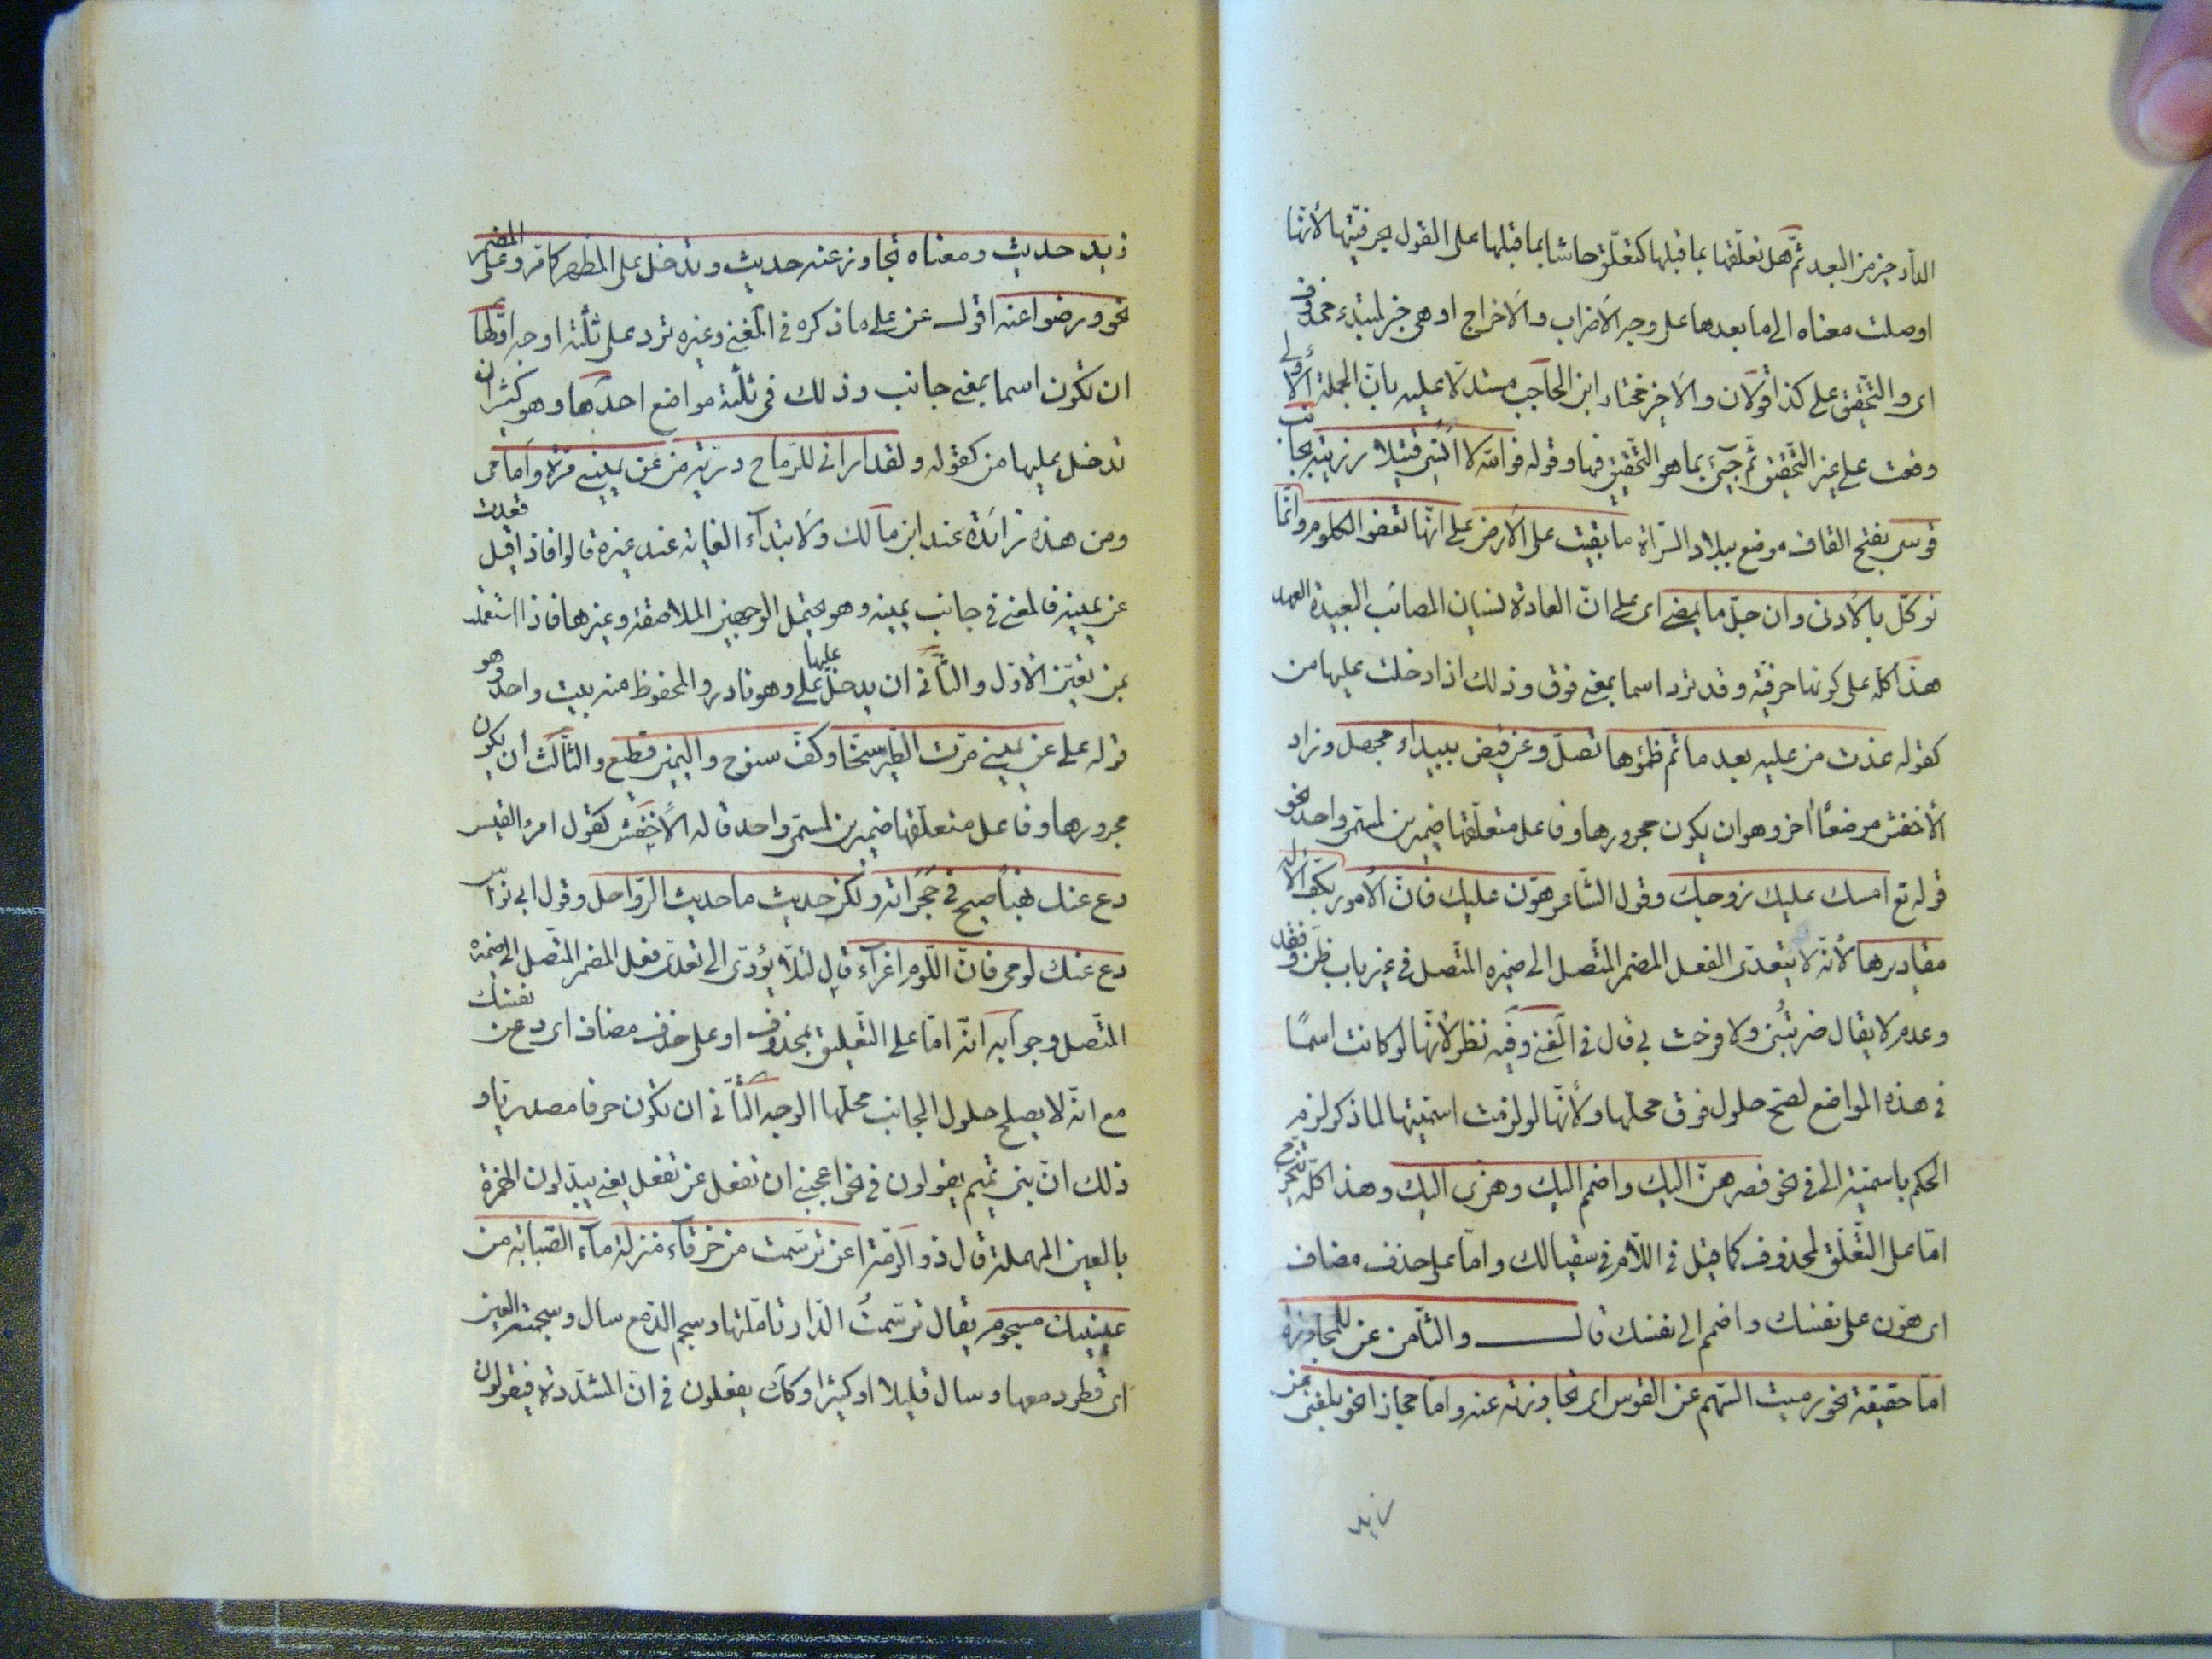 الدار خير من البعد ثمّ هل تعلّقها بما قبلها كتعلّق حاشا بما قبلها على القول بحرفيّتها لأنّها
اوصلت معناه الى ما بعدها على وجه الاضراب والاخراج او هى خبر لمبتدء محذوف
اى والتّحقيق على كذا قولان والاخير مختار ابن الحاجب مستدلا عليه بانّ الجملة الأولى
وقعت على غير التّحقيق ثمّ جيئ بما هو التّحقيق فيها وقوله فوالله لا انسى قتيلا رزيته بجانب
قوسى بفتح القاف موضع ببلاد السّراة ما بقيت على الارض على انّها تعفو الكلوم وانّما
نوكّل بالأدنى وان جلّ ما يمضى اى على انّ العادة نسيان المصائب البعيدة العهد
هذا كلّه على كونها حرفيّة وقد ترد اسما بمعنى فوق وذلك اذا دخلت عليها من
كقوله غدت من عليه بعد ما تم ظمؤها تصلّ وعن قيض ببيداء مجهل وزاد
الأخفش موضعًا اخر وهو ان يكون مجرورها وفاعل متعلّقها ضميرين لمسمّى واحد نحو
قوله تع امسك عليك زوجك وقول الشّاعر هوّن عليك فانّ الأمور بكفّ الاله
مقاديرها لأنّه لا يتعدّى الفعل المضمر المتّصل الى ضميره المتّصل فى غير باب ظنّ وفقد
وعدم لا يقال ضربتُنى ولا فرحت بى قال فى المغنى وفيه نظر لأنّها لو كانت اسمًا
فى هذه المواضع لصحّ حلول فوق محلّها ولأنّها لو لزمت اسميّتها لما ذكر لزم
الحكم باسميّة الى فى نحو فصرهنّ اليك واضمم اليك وهزى اليك وهذا كلّه يتخرّج
امّا على التّعلّق لمحذوف كما قيل فى اللّام فى سقيا لك وامّا على حذف مضاف
اى هوّن على نفسك واضمم الى نفسك قال والثّامن عن للمجاوزة
امّا حقيقة نحو رميت السّهم عن القوس اى تجاوزته عنه وامّا مجازا نحو بلغنى عن
زيد
زيد حديث ومعناه تجاوز عنه حديث وتدخل على المظهر كما مر وعلى المضمر
نحو ورضوا عنه اقول عن على ما ذكره فى المغنى وغيره ترد على ثلثة اوجه اوّلها
ان تكون اسما بمعنى جانب وذلك فى ثلثة مواضع احدها وهو كثير ان
تدخل عليها من كقوله ولقد ارانى للرّماح دريّة من عن يمينى مرّة وامامى
ومن هذه زائدة عند ابن مالك ولابتداء الغاية عند غيره قالوا فاذا قيل قعدت
عن يمينه فالمعنى فى جانب يمينه وهو يحتمل الوجهين الملاصقة وغيرها فاذا استعملت
بمن تعيّن الأوّل والثّانى ان يدخل عليها على وهو نادر والمحفوظ منه بيت واحد وهو
قوله على عن يمينى مرّت الطّير سنّحا وكفّ سنوح واليمين قطيع والثّالث أن يكون
مجرورها وفاعل متعلّقها ضميرين لمسمّى واحد قاله الأخفش كقول امرء القيس
دع عنك نهبًا صيح فى حجراته ولكن حديث ما حديث الرّواحل وقول ابى نواس
دع عنك لومى فانّ اللّوم اغراء قال لئلّا يؤدّى الى تعدّى فعل المضمر المتّصل الى ضميره
المتّصل وجوابه انّه امّا على التّعليق بمحذوف او على حذف مضاف اى دع عن نفسك
مع انّه لا يصلح حلول الجانب محلّها الوجه الثّانى ان تكون حرفا مصدريّا و
ذلك انّ بنى تميم يقولون فى نحو اعجبنى ان تفعل عن تفعل يعنى يبدّلون الهمزة
بالعين المهملة قال ذو الرّمّة اعن ترسّمت من خرقاء منزلة ماء الصّبابة من
عينيك مسجوم يقال ترسّمتُ الدّار تامّلتها وسجم الدّمع سال وسجمته العين
اى قطر دمعها وسال قليلا او كثيرا وكذا يفعلون فى انّ المشدّدة فيقولون